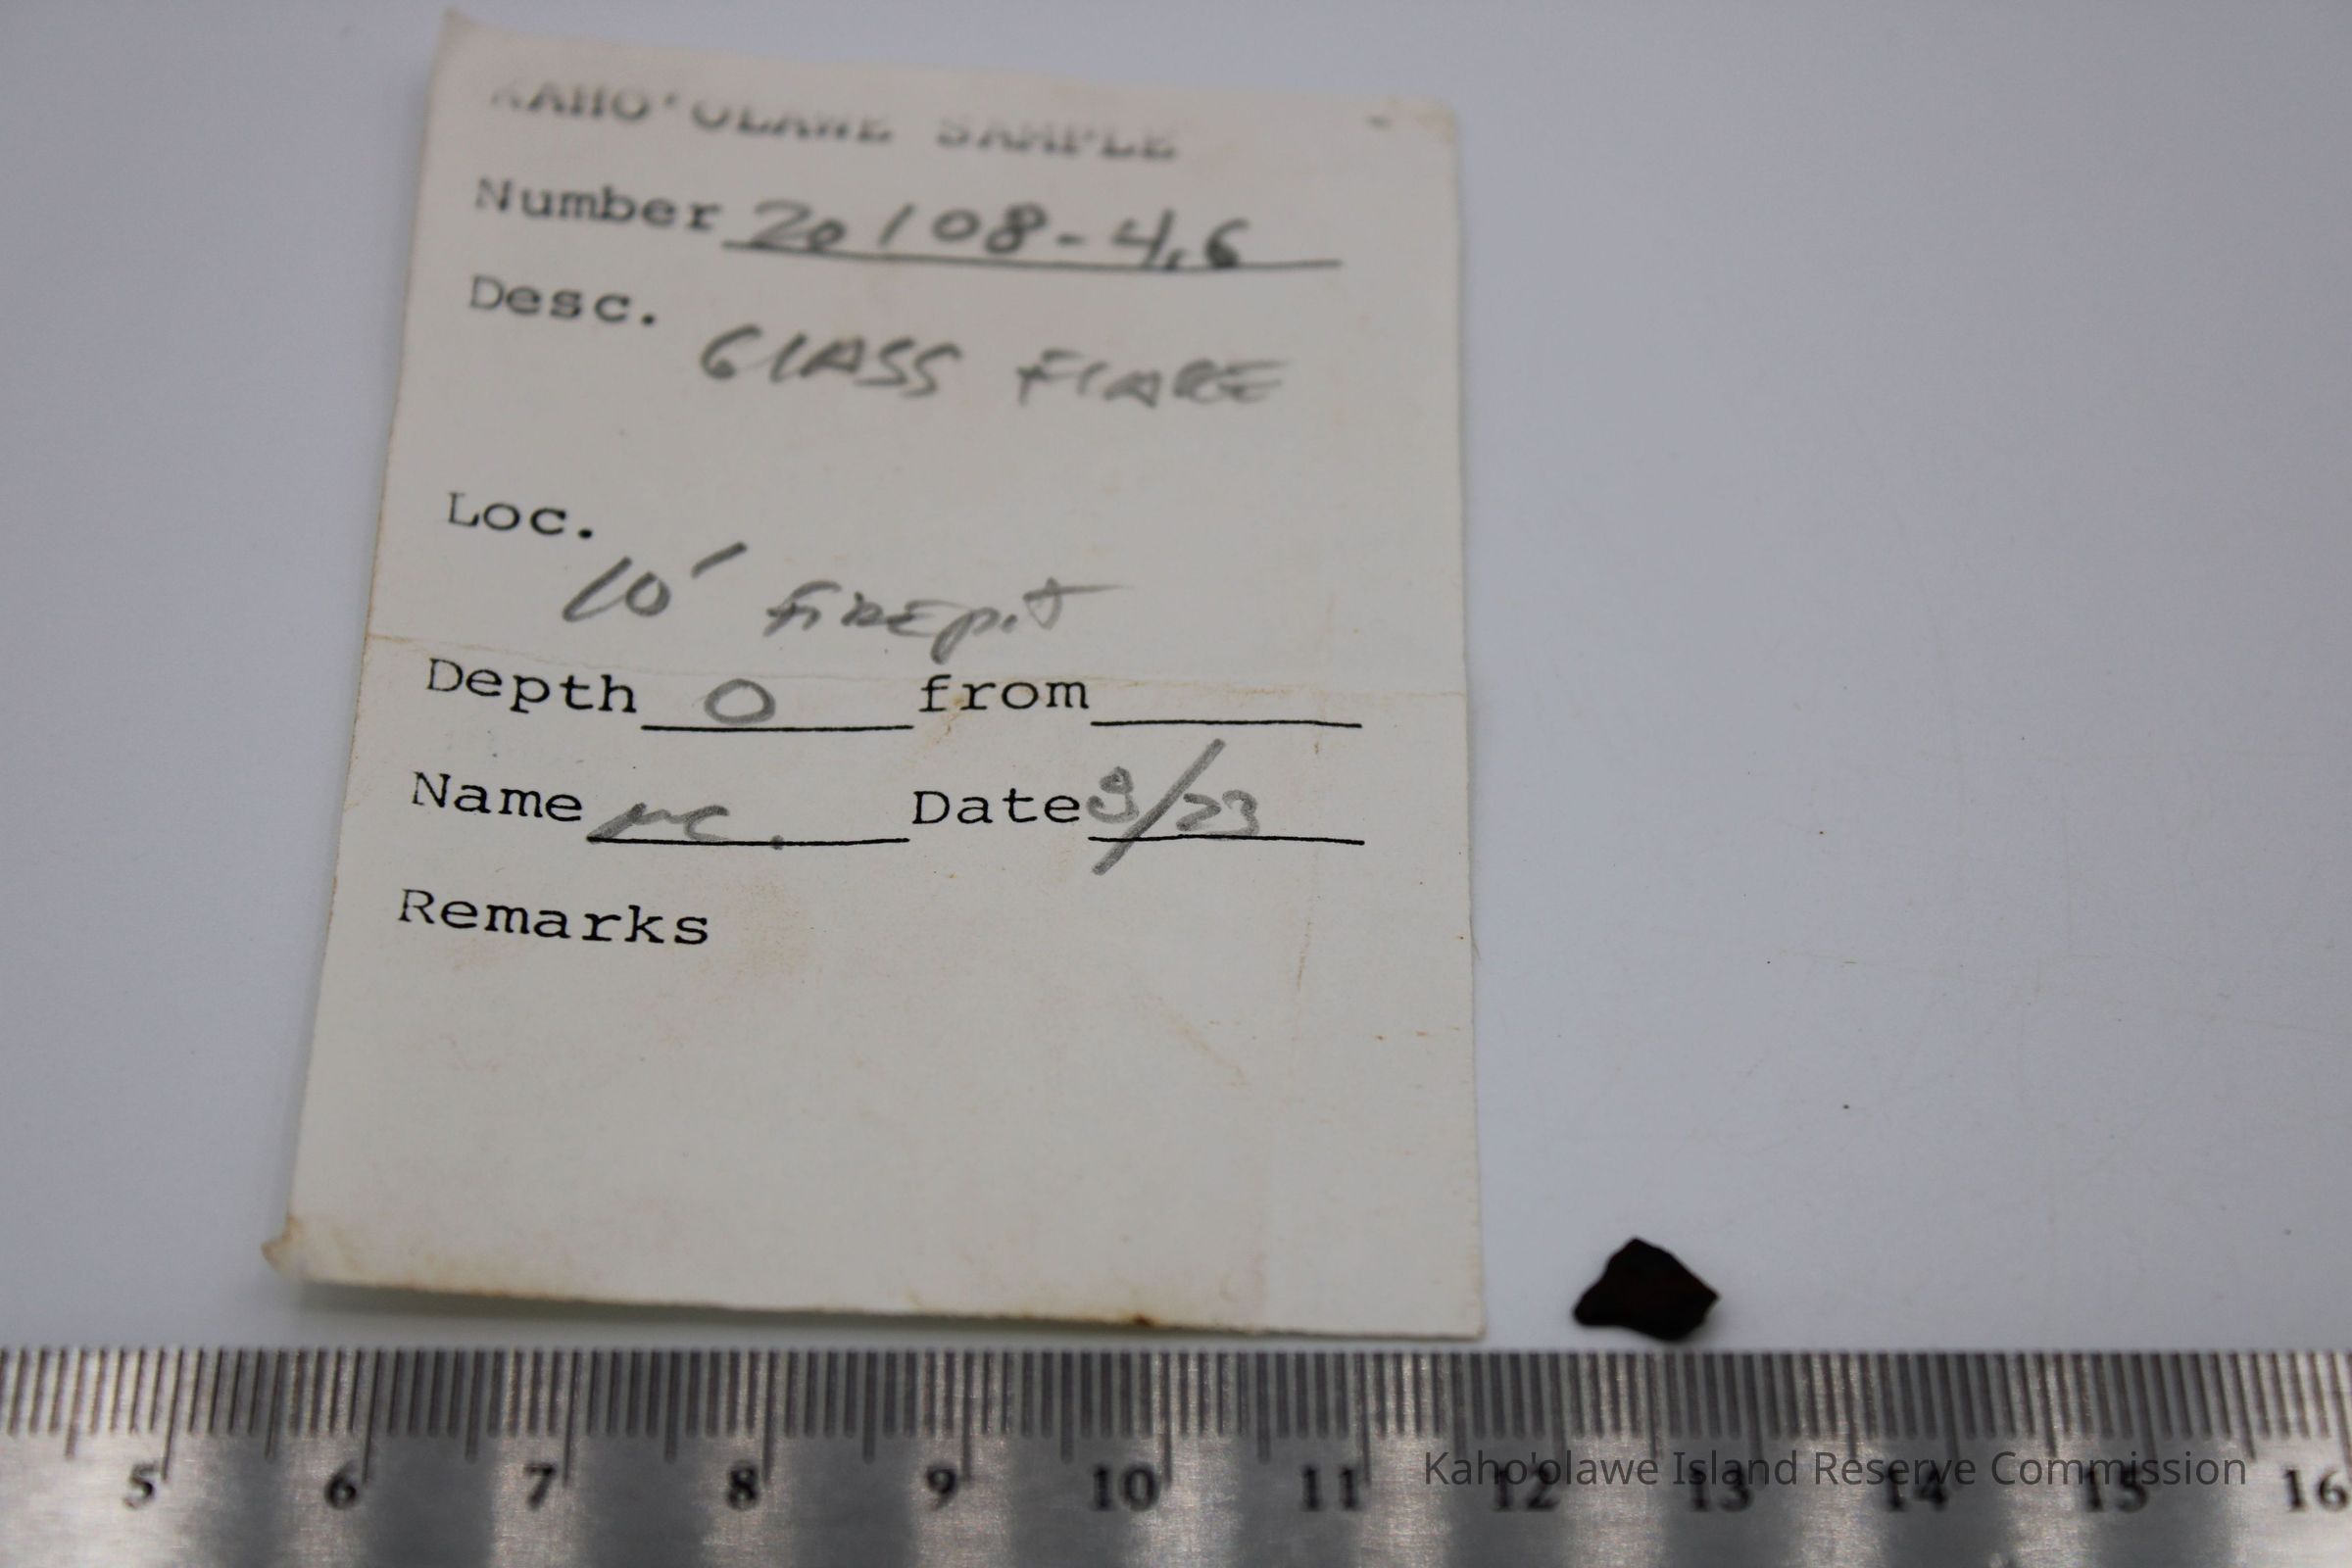 KAHO'OLAWE SAMPLE
Number 20108-4,6
Desc.
GLASS FLAKE
Loc.
10' FIREpit
Depth 0 from
Name MC. Date 9/23
Remarks
5 6 7 8 9 10 11 12 13 14 15 16
Kaho'olawe Island Reserve Commission